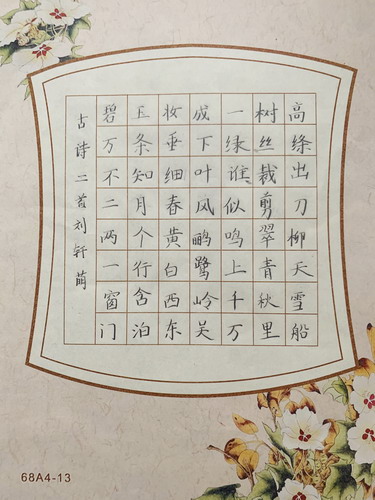 古诗二首刘轩萌
碧玉妆成一树高
万条垂下绿丝绦
不知细叶谁裁出
二月春风似剪刀
两个黄鹂鸣翠柳
一行白鹭上青天
窗含西岭千秋雪
门泊东吴万里船
68A4-13